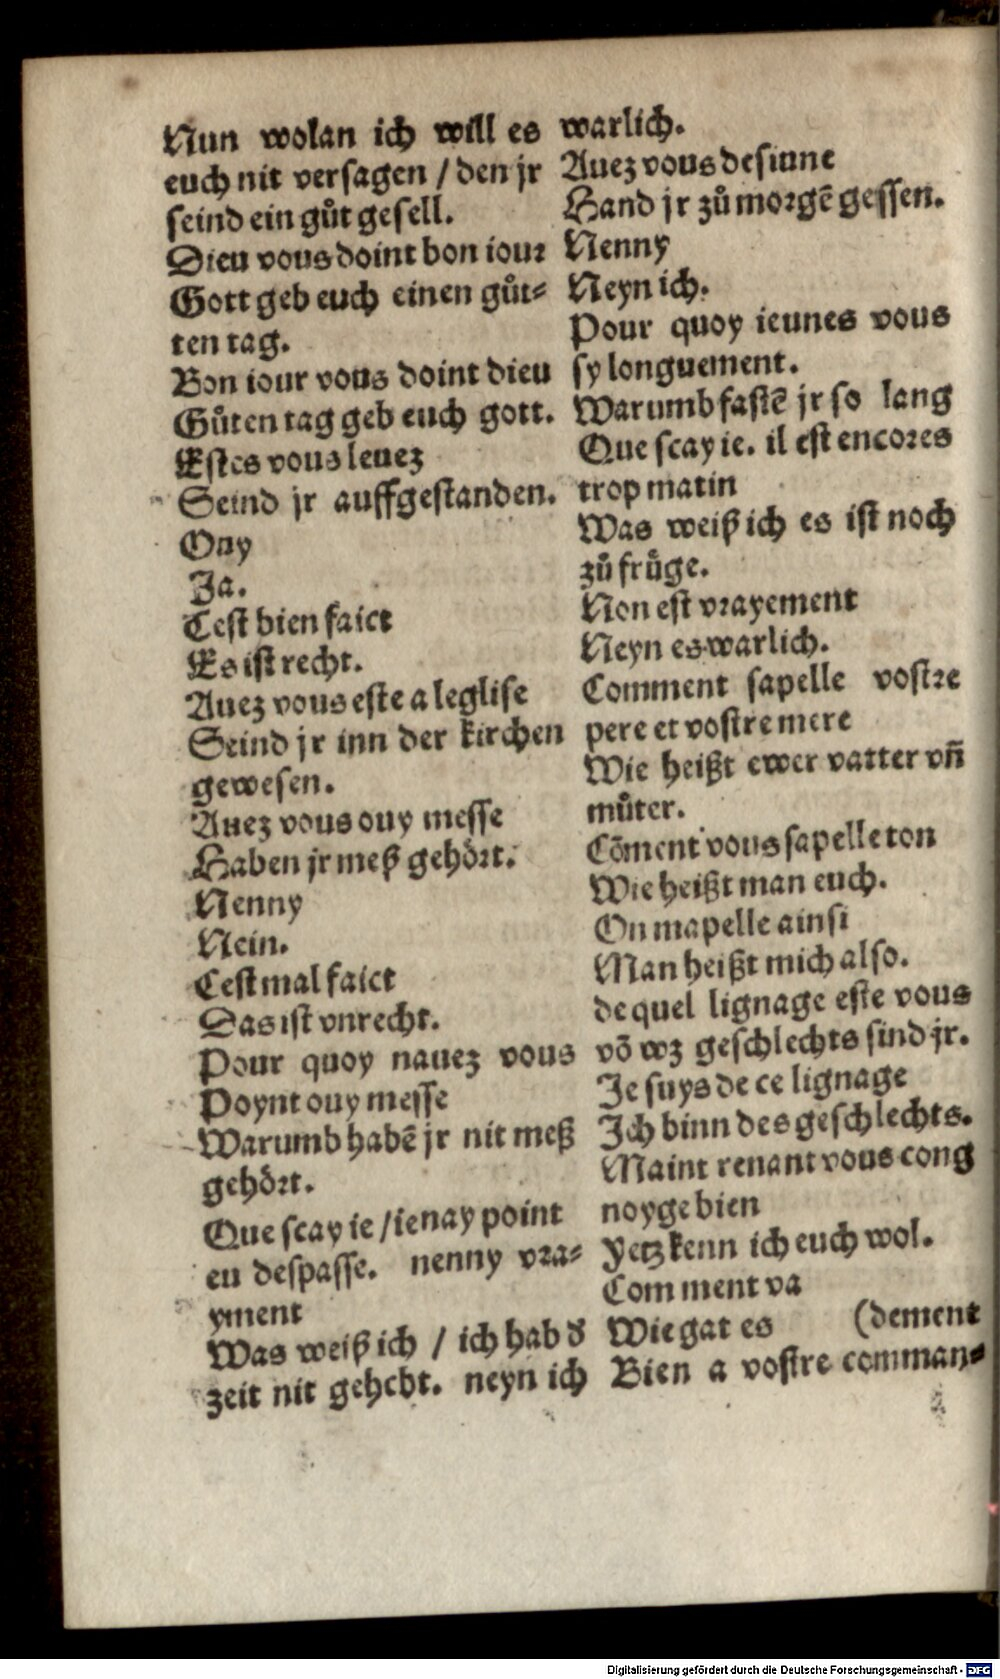 Nun wolan ich will es
euch nit versagen / den jr
seind ein gůt gesell.
Dieu vous doint bon iour
Gott geb euch einen gůt⸗
ten tag.
Bon iour vous doint dieu
Gůten tag geb euch gott.
Estes vous leuez
Seind jr auffgestanden.
Ouy
Ja.
Cest bien faict
Es ist recht.
Auez vous este a leglise
Seind jr inn der kirchen
gewesen.
Auez vous ouy messe
Haben jr meß gehört.
Nenny
Nein.
Cest mal faict
Das ist vnrecht.
Pour quoy nauez vous
Poynt ouy messe
Warumb habē jr nit meß
gehört.
Que scay ie / ie nay point
eu despasse. nenny vra⸗
yment
Was weiß ich / ich hab d
zeit nit gehebt. neyn ich
warlich.
Auez vous desiune
Hand jr zů morgē gessen.
Nenny
Neyn ich.
Pour quoy ieunes vous
sy longuement.
Warumb fastē jr so lang
Que scay ie. il est encores
trop matin
Was weiß ich es ist noch
zů frůge.
Non est vrayement
Neyn es warlich.
Comment sapelle vostre
pere et vostre mere
Wie heißt ewer vatter vñ
můter.
Cōment vous sapelle ton
Wie heißt man euch.
On mapelle ainsi
Man heißt mich also.
de quel lignage este vous
vō wz geschlechts sind jr.
Je suys de ce lignage
Ich binn des geschlechts.
Maint renant vous cong
noyge bien
Yetz kenn ich euch wol.
Com ment va
Wie gat es (dement
Bien a vostre comman⸗
Digitalisierung gefördert durch die Deutsche Forschungsgemeinschaft - DFG